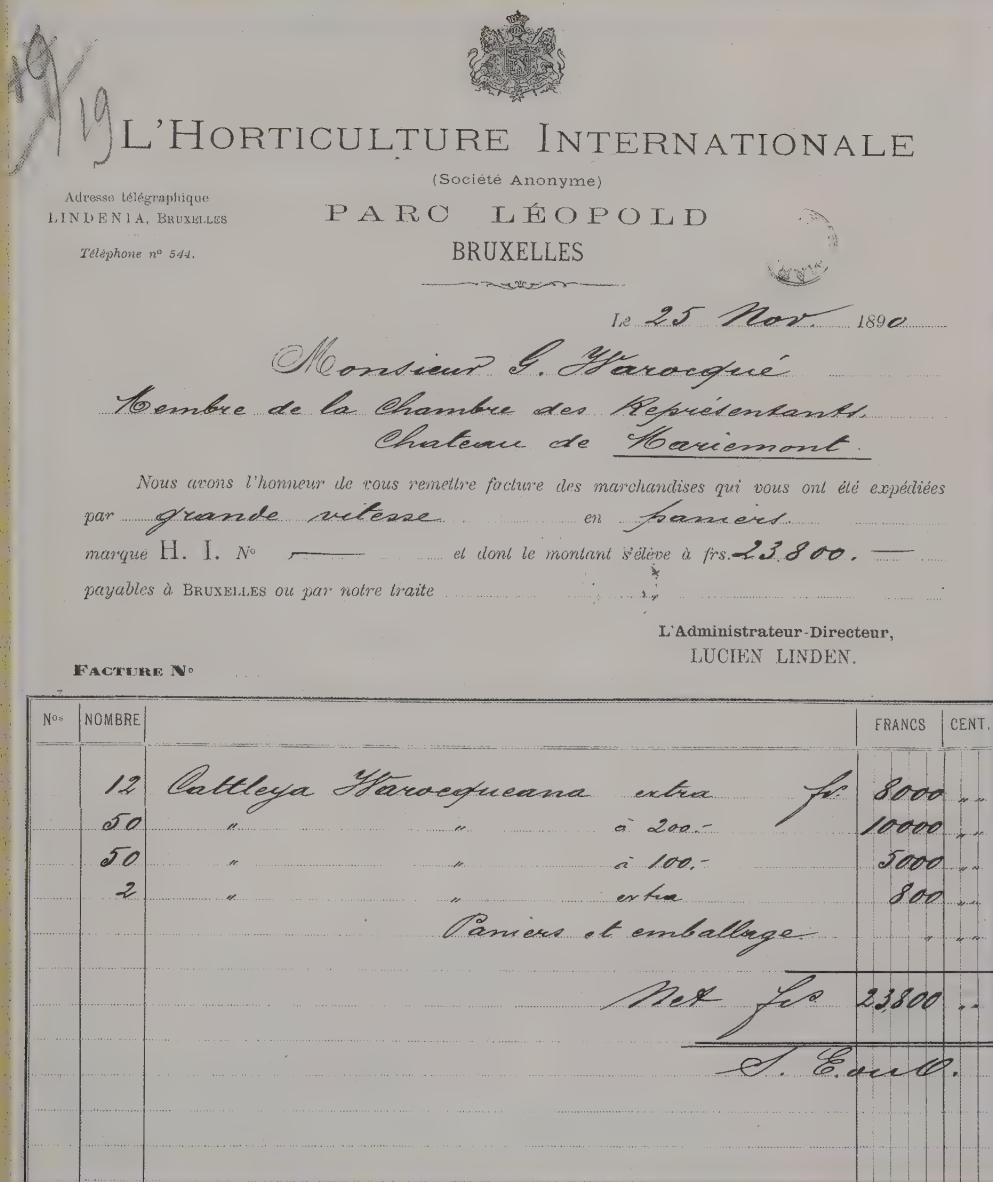 19
L'HORTICULTURE INTERNATIONALE
(Société Anonyme)
Adresse télégraphique
LINDENIA, BRUXELLES
Téléphone nº 544.
PARC LÉOPOLD
BRUXELLES
Le 25 Nov. 1890
Monsieur G. Warocqué
Membre de la Chambre des Représentants.
Chateau de Mariemont.
Nous avons l'honneur de vous remettre facture des marchandises qui vous ont été expédiées
par grande vitesse en paniers.
marque H. I. Nº — et dont le montant s'élève à frs. 23.800. —
payables à BRUXELLES ou par notre traite
L'Administrateur-Directeur,
LUCIEN LINDEN.
FACTURE Nº
Nos NOMBRE FRANCS CENT.
12 Cattleya Warocqueana extra fr. 8000 „ „
50 „ „ à 200.- 10000 „ „
50 „ „ à 100.- 5000 „ „
2 „ „ extra 800 „ „
Paniers et emballage „ „ „
Net frs 23,800 „ „
S. E. ou O.